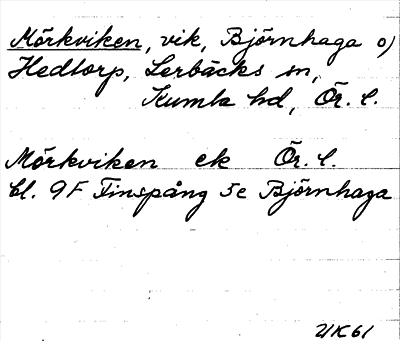 Mörkviken, vik, Björnhaga o)
Hedtorp, Lerbäcks sn,
Kumla hd, Ör. l.
Mörkviken ek Ör. l.
bl. 9F Finspång 5e Björnhaga
UK61